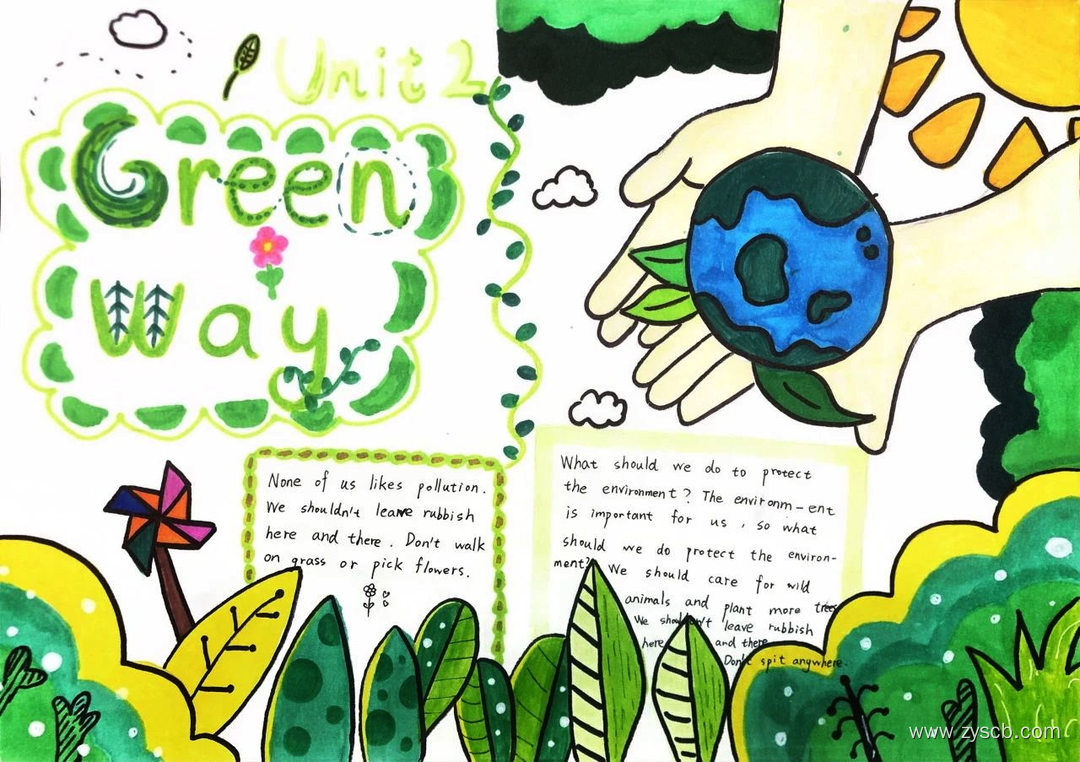 Unit 2
Green
Way
None of us likes pollution.
We shouldn't leave rubbish
here and there. Don't walk
on grass or pick flowers.
What should we do to protect
the environment? The environm-ent
is important for us, so what
should we do protect the environ-
ment? We should care for wild
animals and plant more trees
We shouldn't leave rubbish
here and there
Don't spit anywhere.
www.zyscb.com